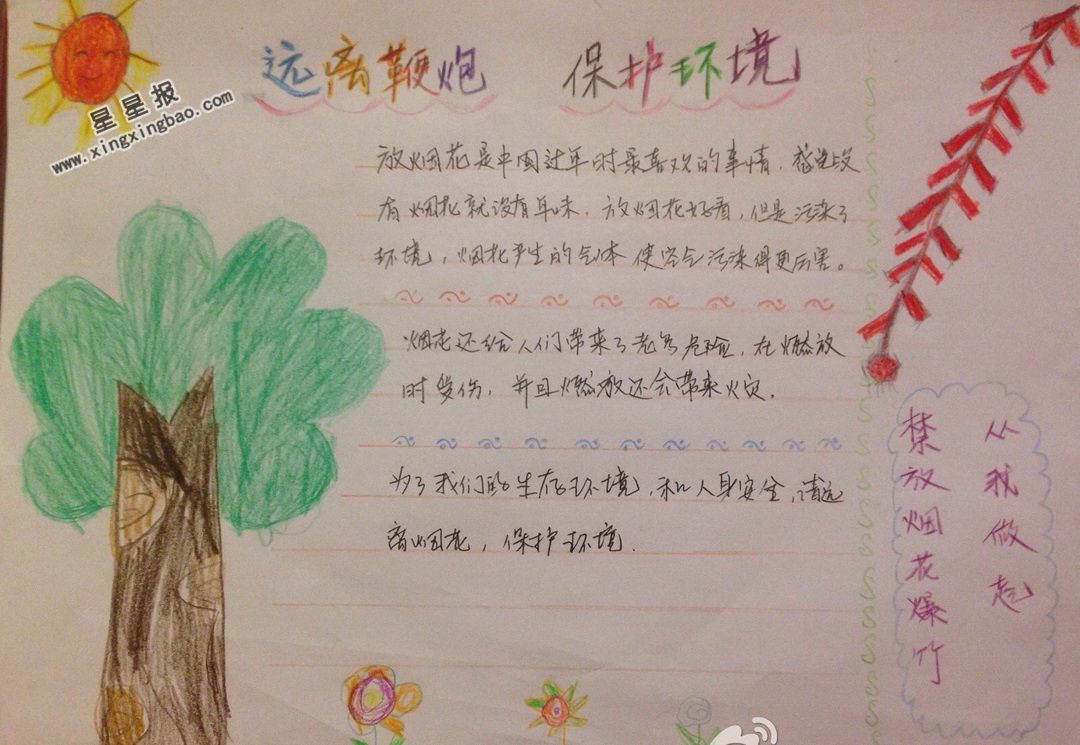 远离鞭炮 保护环境
星星报
www.xingxingbao.com
放烟花是中国过年时最喜欢的事情，感觉没
有烟花就没有年味，放烟花好看，但是污染了
环境，烟花产生的气体使空气污染得更厉害。
烟花还给人们带来了危险，在燃放
时受伤，并且燃放还会带来火灾。
为了我们的生存环境，和人身安全，请远
离烟花，保护环境.
从我做起
禁放烟花爆竹